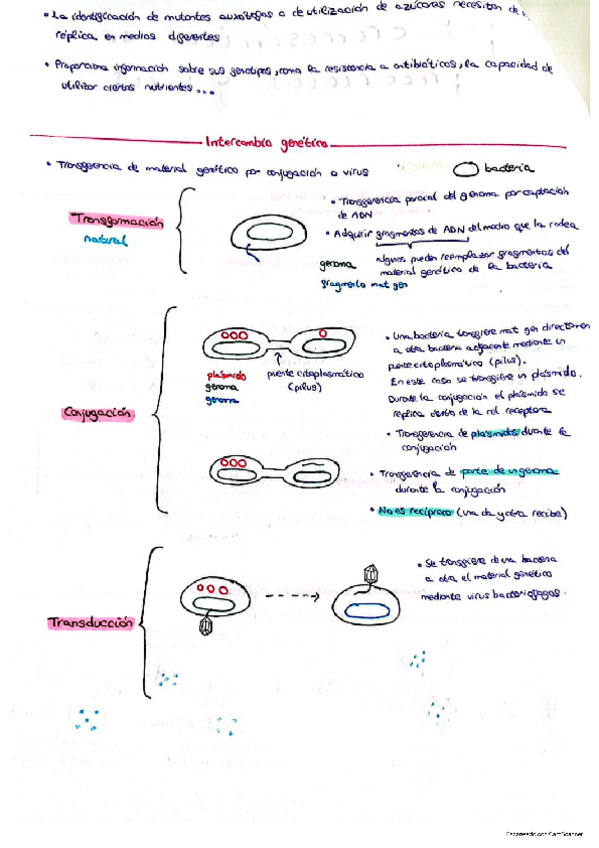 • La identificación de mutantes auxótrofos o de utilización de azúcares necesitan de
réplica en medios diferentes
• Proporciona información sobre sus genotipos, como la resistencia a antibióticos, la capacidad de
utilizar ciertos nutrientes...
Intercambio genético
• Transferencia de material genético por conjugación o virus
bacteria
Transformación
natural
• Transferencia parcial del genoma por captación
de ADN
• Adquirir fragmentos de ADN del medio que la rodea
genoma
fragmento mat gen
Algunos pueden reemplazar fragmentos del
material genético de la bacteria
Conjugación
plásmido
genoma
genoma
puente citoplasmático
(pilus)
• Una bacteria transfiere mat gen
a otra bacteria adyacente mediante un
puente citoplasmático (pilus).
En este caso se transfiere un plásmido.
Durante la conjugación el plásmido se
replica dentro de la cel receptora
• Transferencia de plásmidos durante la
conjugación
• Transferencia de parte de un genoma
durante la conjugación
• No es recíproco (una da y otra recibe)
Transducción
• Se transfiere de una bacteria
a otra el material genético
mediante virus bacteriófagos.
Escaneado con CamScanner